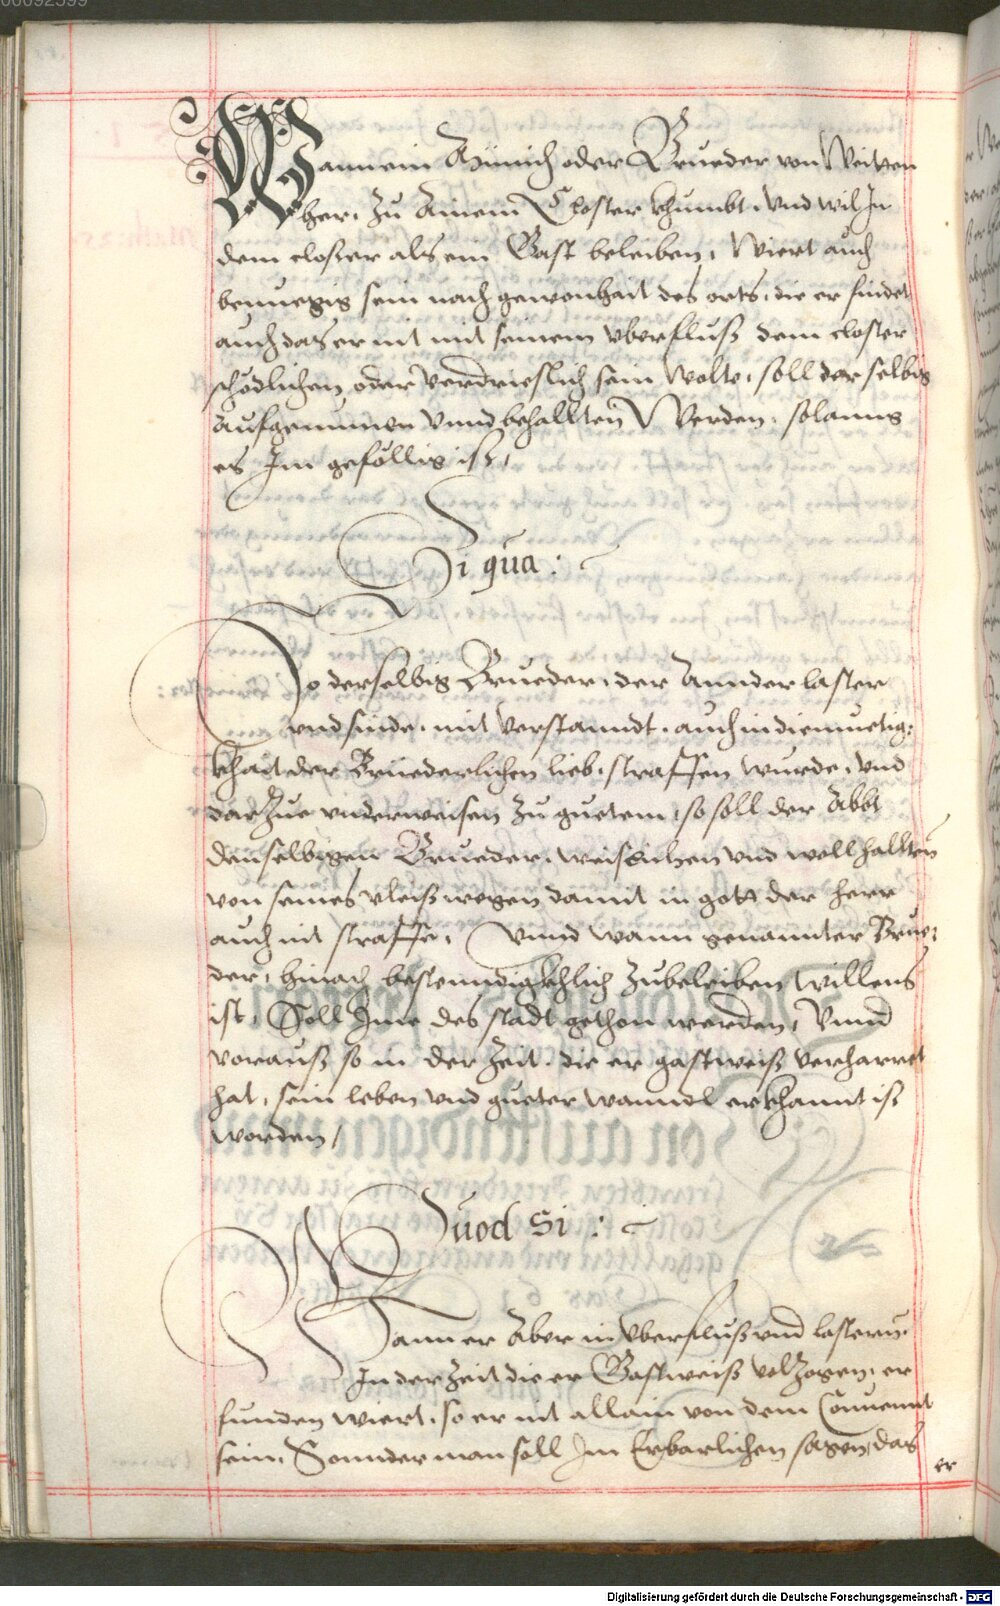 Wann ein Münich oder Brueder von Weitten
her, zu Ainem Closter khumbt, vnd wil In
dem closter als ein Gast beleiben, Wiert auch
benuegig sein nach gewonhait des orts, die er findet
auch das er nit mit seinem vberfluß dem closter
schödlichen oder verdrieslich sein wolte, soll der selbig
aufgenumen vnnd behallten Werden, solanng
es Im geföllig ist,
Si qua :
So derselbig Brueder, der Annder laster
vnd sinde, mit verstanndt, auch in diemuetig:
khait der Bruederlichen lieb, straffen wurde, vnd
darzue vnderweisen zu guetem, so soll der Abbt
denselbigen Brueder, weislichen vnd woll hallten
von seines vleiß wegen damit in gott der herr
auch nit straffe, Vnnd wann genannter Brue:
der, hinach bestenndigkhlich zubeleiben willens
ist, Soll Ime des stadt gethon werden, Vnnd
vorauß so in der Zeit, die er gastweiß verharret
hat, sein leben vnd gueter wanndl erkhannt ist
worden /
Quod Si :
Wann er Aber in vberfluß vnd lastern,
In der Zeit die er Gastweiß volzogen, er
funden wiert, so er nit allain von dem Conuennt
sein, Sonnder man soll Im Erbarlichen sagen, das
er
Digitalisierung gefördert durch die Deutsche Forschungsgemeinschaft - DFG